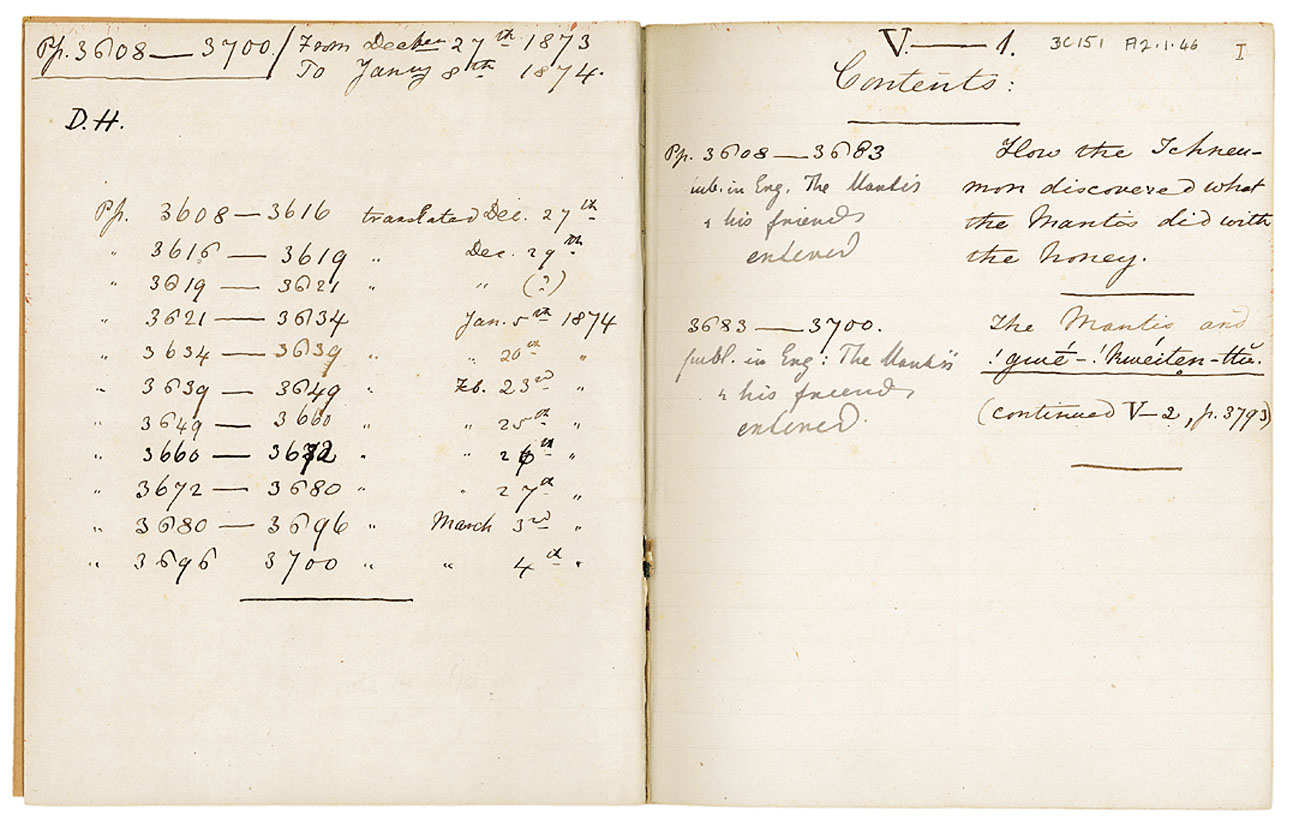 Pp. 3608 — 3700. / From Decber 27th 1873
To Janry 8th 1874.
D.H.
Pp. 3608 — 3616 translated Dec. 27th
" 3616 — 3619 " Dec. 29th
" 3619 — 3621 " " (?)
" 3621 — 3634 Jan. 5th 1874
" 3634 — 3639 " " 20th "
" 3639 — 3649 " Feb. 23rd "
" 3649 — 3660 " " 25th "
" 3660 — 3672 " " 26th "
" 3672 — 3680 " " 27th "
" 3680 — 3696 " March 3rd "
" 3696 3700 " " 4th "
V. — 1. 3C151 A2.1.46 I
Contents:
Pp. 3608 — 3683 How the Ichneu-
in Eng. The Mantis mon discovered what
& his friends the Mantis did with
entered the honey.
3683 — 3700. The Mantis and
publ. in Eng: The Mantis
& his friends (continued V—2, p. 3793)
entered.